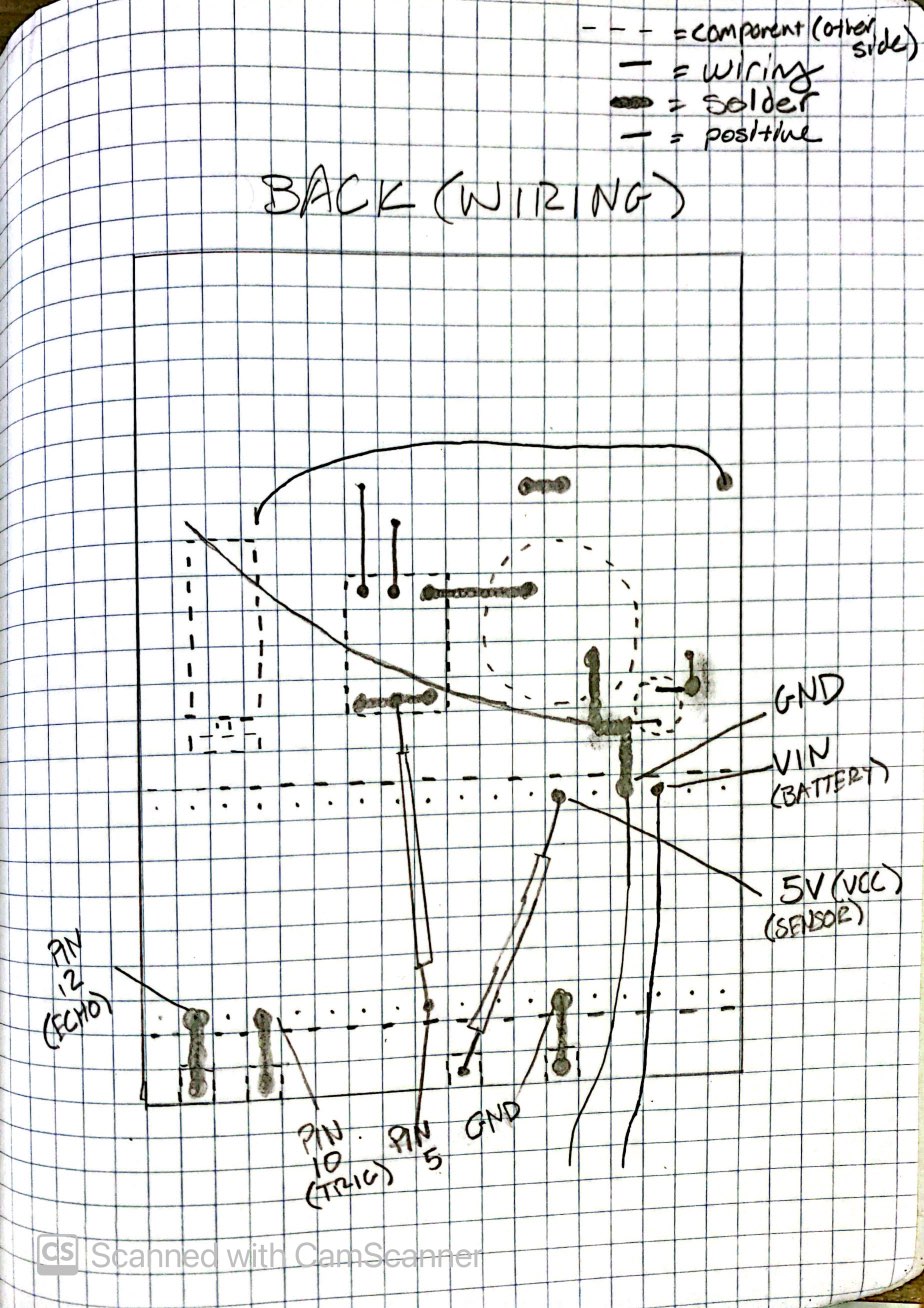 --- = component (other side)
— = wiring
= solder
— = positive
BACK (WIRING)
GND
VIN
(BATTERY)
5V (VCC)
(SENSOR)
PIN
12
(ECHO)
PIN
10
(TRIG)
PIN
5
GND
CS Scanned with CamScanner